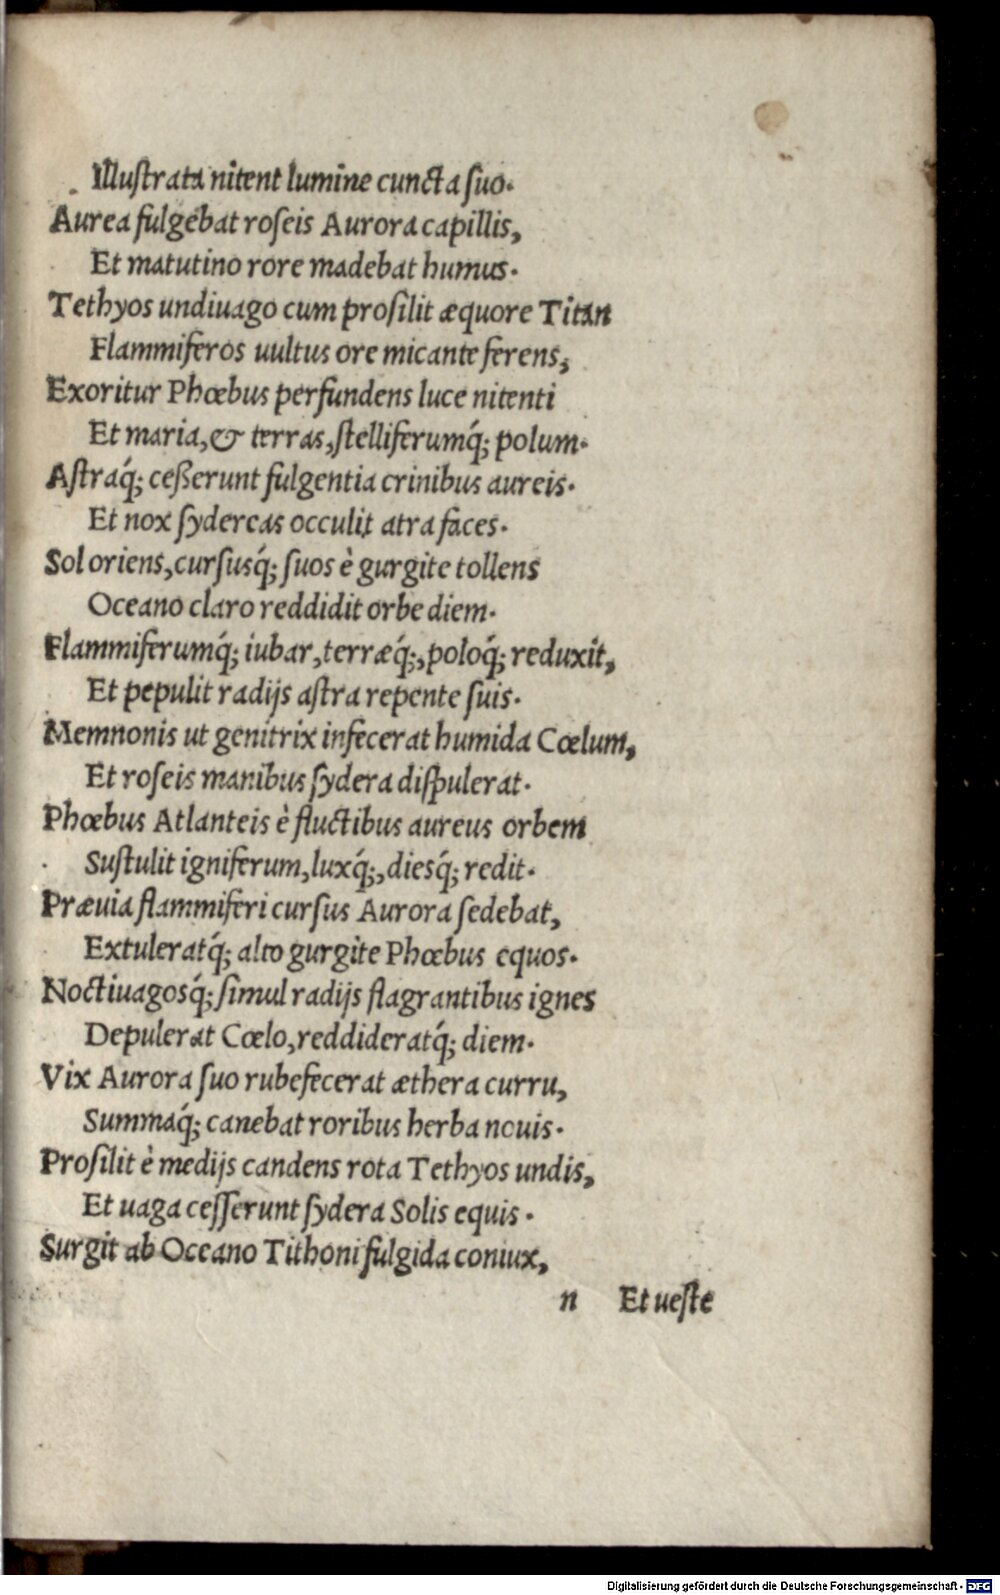 Illuſtrata nitent lumine cuncta ſuo.
Aurea fulgebat roſeis Aurora capillis,
Et matutino rore madebat humus.
Tethyos undiuago cum proſilit æquore Titan
Flammiferos uultus ore micante ferens,
Exoritur Phœbus perfundens luce nitenti
Et maria, & terras, ſtelliferumq́; polum.
Aſtraq́; ceßerunt fulgentia crinibus aureis.
Et nox ſydereas occulit atra faces.
Sol oriens, curſusq́; ſuos è gurgite tollens
Oceano claro reddidit orbe diem.
Flammiferumq́; iubar, terræq́;, poloq́; reduxit,
Et pepulit radijs aſtra repente ſuis.
Memnonis ut genitrix infecerat humida Cœlum,
Et roſeis manibus ſydera diſpulerat.
Phœbus Atlanteis è fluctibus aureus orbem
Suſtulit igniferum, luxq́;, diesq́; redit.
Præuia flammiferi curſus Aurora ſedebat,
Extuleratq́; alto gurgite Phœbus equos.
Noctiuagosq́; ſimul radijs flagrantibus ignes
Depulerat Cœlo, reddideratq́; diem.
Vix Aurora ſuo rubefecerat æthera curru,
Summaq́; canebat roribus herba nouis.
Proſilit è medijs candens rota Tethyos undis,
Et uaga ceſſerunt ſydera Solis equis.
Surgit ab Oceano Tithoni fulgida coniux,
n Et ueſte
Digitalisierung gefördert durch die Deutsche Forschungsgemeinschaft - DFG